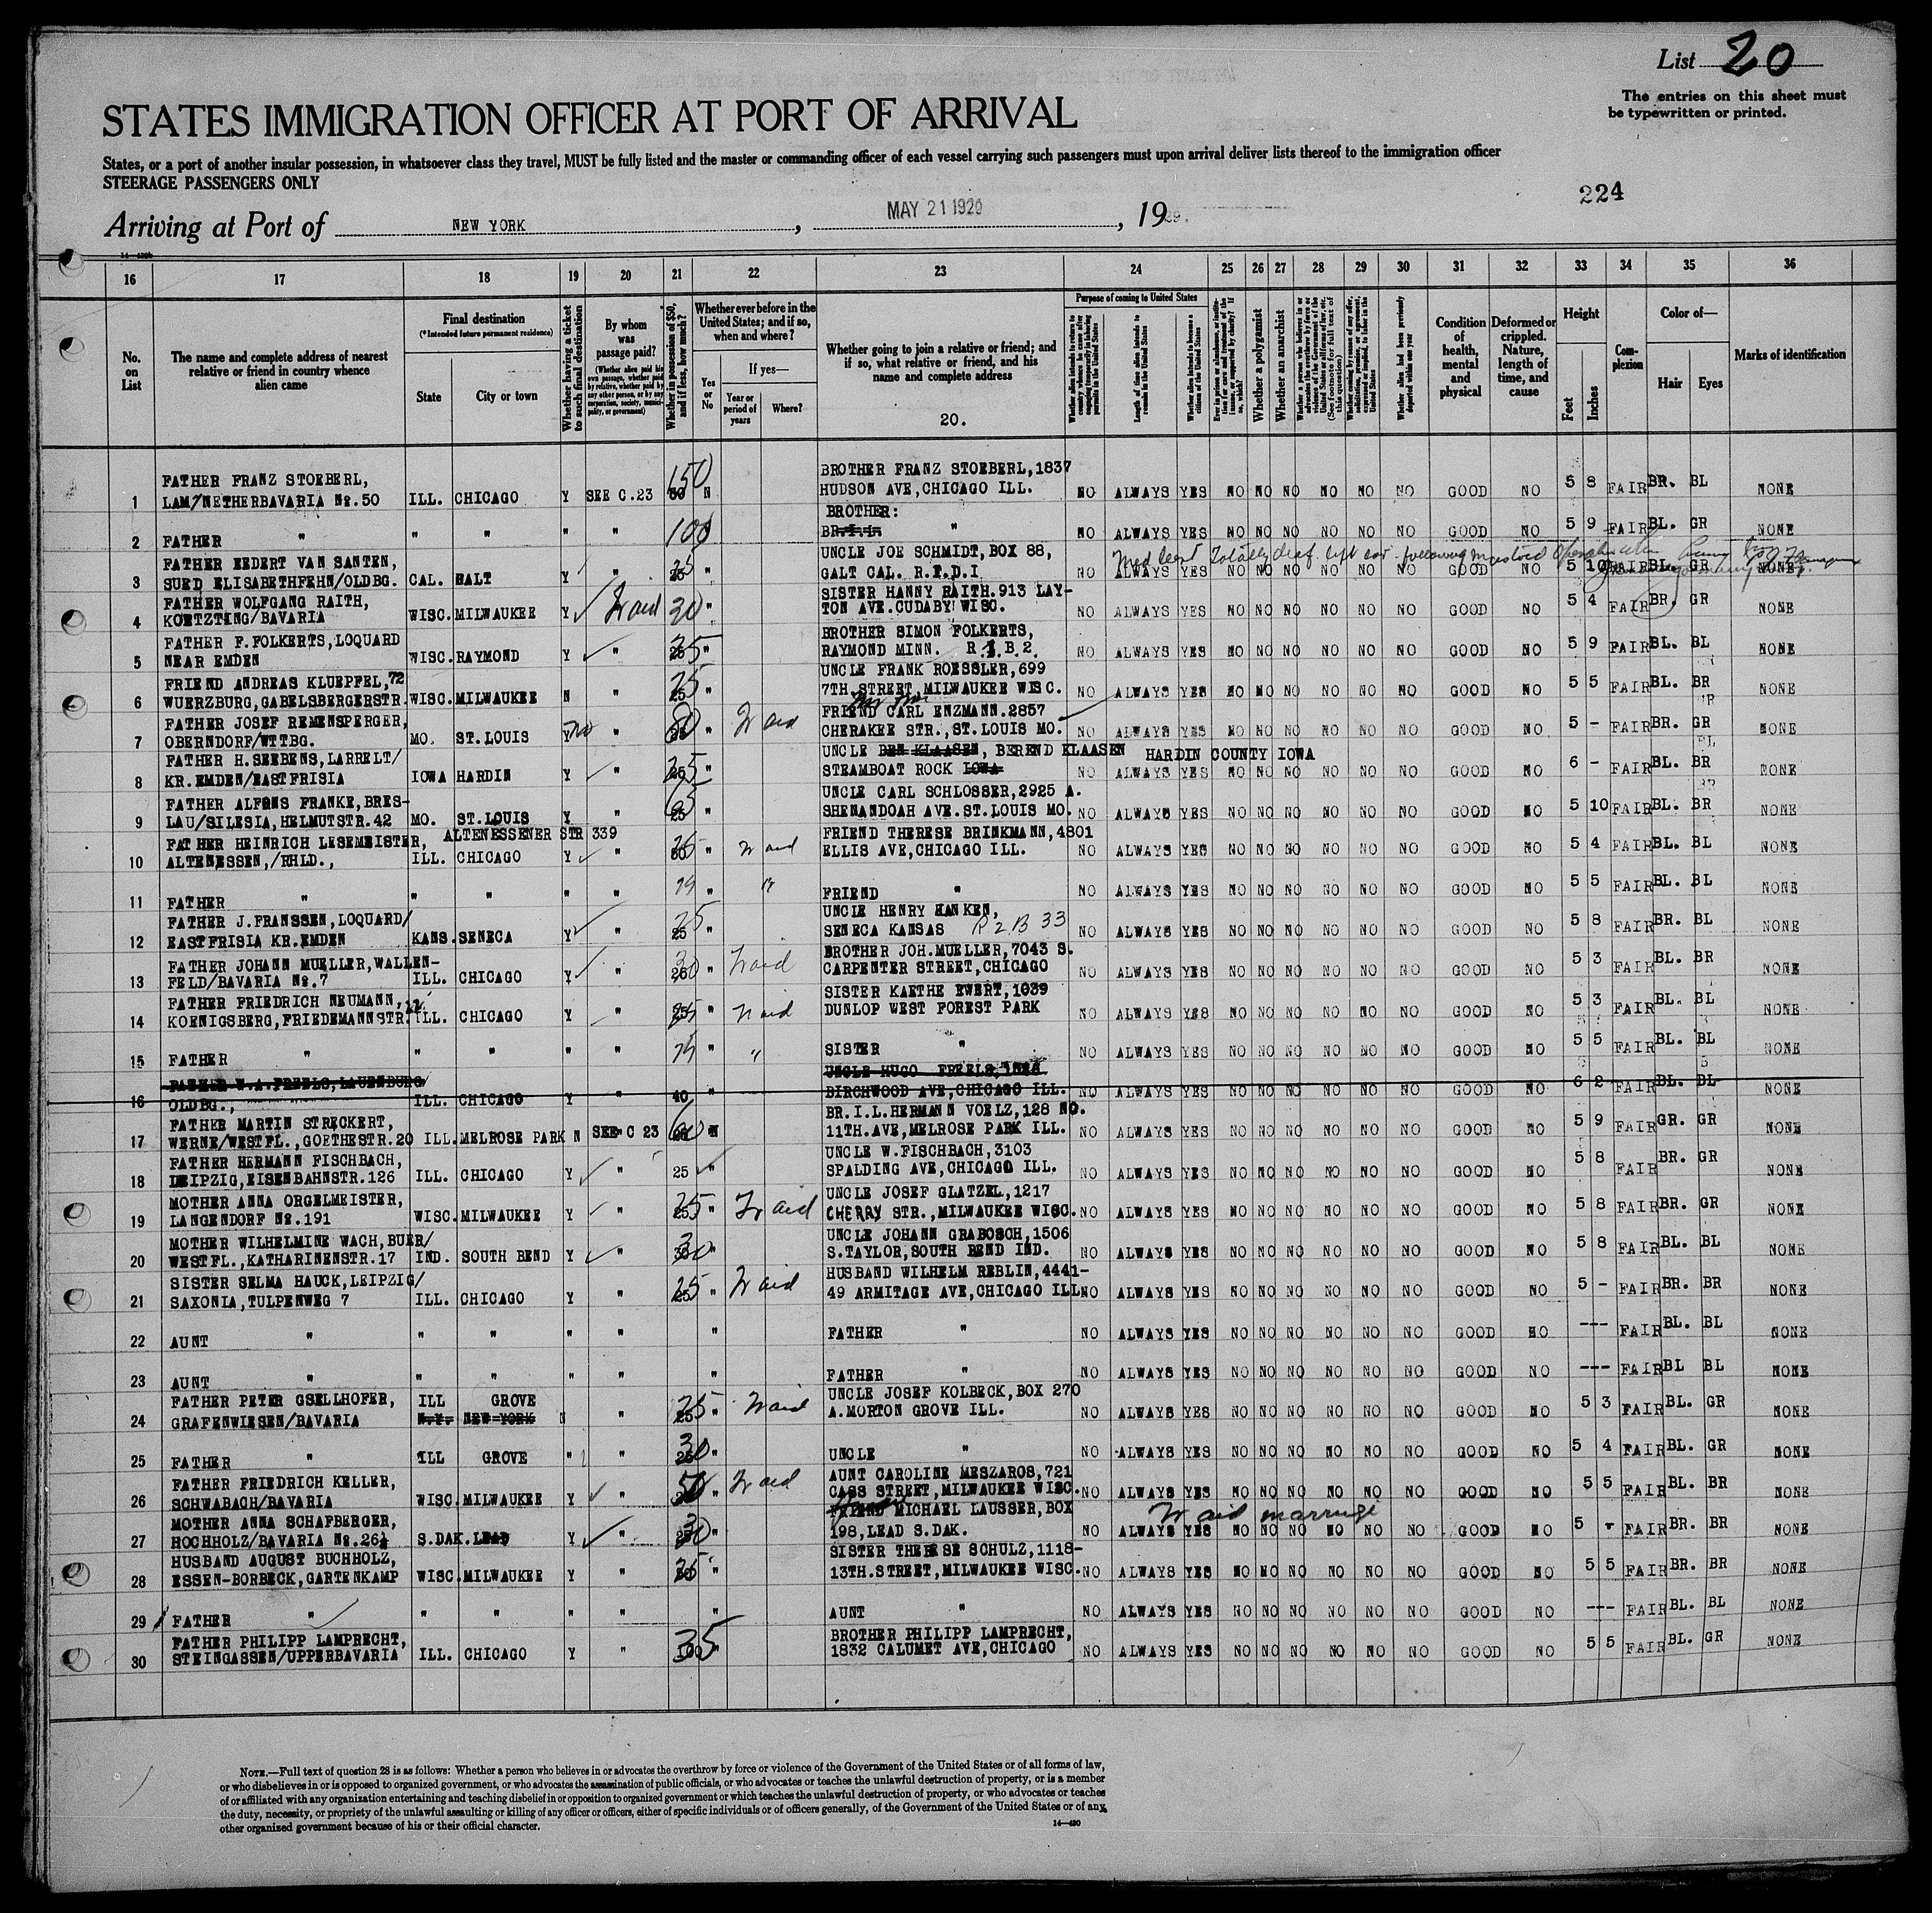 List 20
The entries on this sheet must
be typewritten or printed.
STATES IMMIGRATION OFFICER AT PORT OF ARRIVAL
States, or a port of another insular possession, in whatsoever class they travel, MUST be fully listed and the master or commanding officer of each vessel carrying such passengers must upon arrival deliver lists thereof to the immigration officer
STEERAGE PASSENGERS ONLY
224
Arriving at Port of NEW YORK, MAY 21 1929, 1929.
16 17 18 19 20 21 22 23 24 25 26 27 28 29 30 31 32 33 34 35 36
No. on List
The name and complete address of nearest relative or friend in country whence alien came
Final destination
(*Intended future permanent residence)
State
City or town
Whether having a ticket to such final destination
By whom was passage paid?
(Whether alien paid his own passage, whether paid by relative, whether paid by any other person, or by any corporation, society, municipality, or government)
Whether in possession of $50, and if less, how much?
Whether ever before in the United States; and if so, when and where?
Yes or No
If yes—
Year or period of years
Where?
Whether going to join a relative or friend; and if so, what relative or friend, and his name and complete address
20.
Purpose of coming to United States
Length of time alien intends to remain in the United States
Whether alien intends to become a citizen of the United States
Whether a polygamist
Whether an anarchist
Whether alien had been previously deported within one year
Condition of health, mental and physical
Deformed or crippled. Nature, length of time, and cause
Height
Feet
Inches
Complexion
Color of—
Hair
Eyes
Marks of identification
1 FATHER FRANZ STOEBERL, LAM/NETHERBAVARIA No.50 ILL. CHICAGO Y SEE C.23 150 N BROTHER FRANZ STOEBERL,1837 HUDSON AVE,CHICAGO ILL. NO ALWAYS YES NO NO NO NO NO NO GOOD NO 5 8 FAIR BR. BL NONE
2 FATHER " " " " " 100 BROTHER: " NO ALWAYS YES NO NO NO NO NO NO GOOD NO 5 9 FAIR BL. GR NONE
3 FATHER EEDERT VAN SANTEN, SUED ELISABETHFEHN/OLDBG. CAL. GALT Y " 25 " UNCLE JOE SCHMIDT,BOX 88, GALT CAL. R.F.D.I NO ALWAYS YES NO NO NO NO NO NO GOOD NO 5 10 FAIR BL. GR NONE
Totally deaf left ear following mastoid operation
4 FATHER WOLFGANG RAITH, KOETZTING/BAVARIA WISC. MILWAUKEE Y 20 " SISTER HANNY RAITH.913 LAY- TON AVE.CUDABY WISC. NO ALWAYS YES NO NO NO NO NO NO GOOD NO 5 4 FAIR BR. GR NONE
5 FATHER F.FOLKERTS,LOQUARD NEAR EMDEN WISC. RAYMOND Y " 25 " BROTHER SIMON FOLKERTS, RAYMOND MINN. R.1.B.2. NO ALWAYS YES NO NO NO NO NO NO GOOD NO 5 9 FAIR BL. BL NONE
6 FRIEND ANDREAS KLUEPFEL,72 WUERZBURG,GABELSBERGERSTR. WISC. MILWAUKEE N " 25 " UNCLE FRANK ROESSLER,699 7TH.STREET,MILWAUKEE WISC. NO ALWAYS YES NO NO NO NO NO NO GOOD NO 5 5 FAIR BL. BR NONE
7 FATHER JOSEF REMENSPERGER, OBERNDORF/WTTBG. MO. ST.LOUIS no " " FRIEND CARL ENZMANN.2857 CHERAKEE STR.,ST.LOUIS MO. NO ALWAYS YES NO NO NO NO NO NO GOOD NO 5 - FAIR BR. GR NONE
8 FATHER H.SEEBENS,LARRELT/ KR.EMDEN/EASTFRISIA IOWA HARDIN Y " 25 " UNCLE BEN KLAASEN, BEREND KLAASEN HARDIN COUNTY IOWA STEAMBOAT ROCK IOWA NO ALWAYS YES NO NO NO NO NO NO GOOD NO 6 - FAIR BL. BR NONE
9 FATHER ALFONS FRANKE,BRES- LAU/SILESIA,HELMUTSTR.42 MO. ST.LOUIS Y " 25 " UNCLE CARL SCHLOSSER,2925 A. SHENANDOAH AVE.ST.LOUIS MO. NO ALWAYS YES NO NO NO NO NO NO GOOD NO 5 10 FAIR BL. BR NONE
10 FATHER HEINRICH LESEMEISTER, ALTENESSENER STR 339 ALTENESSEN,/RHLD., ILL. CHICAGO Y " " FRIEND THERESE BRINKMANN,4801 ELLIS AVE,CHICAGO ILL. NO ALWAYS YES NO NO NO NO NO NO GOOD NO 5 4 FAIR BL. BL NONE
11 FATHER " " " " " " FRIEND " NO ALWAYS YES NO NO NO NO NO NO GOOD NO 5 5 FAIR BL. BL NONE
12 FATHER J.FRANSSEN,LOQUARD/ EASTFRISIA KR.EMDEN KANS. SENECA Y " 25 " UNCLE HENRY HANKEN, SENECA KANSAS R 2 B 33 NO ALWAYS YES NO NO NO NO NO NO GOOD NO 5 8 FAIR BR. BL NONE
13 FATHER JOHANN MUELLER,WALLEN- FELD/BAVARIA No.7 ILL. CHICAGO Y " 30 " BROTHER JOH.MUELLER,7043 S. CARPENTER STREET,CHICAGO NO ALWAYS YES NO NO NO NO NO NO GOOD NO 5 3 FAIR BL. BR NONE
14 FATHER FRIEDRICH NEUMANN,12 KOENIGSBERG,FRIEDEMANNSTR. ILL. CHICAGO Y " 25 " SISTER KAETHE EWERT,1039 DUNLOP WEST FOREST PARK NO ALWAYS YES NO NO NO NO NO NO GOOD NO 5 3 FAIR BL. BL NONE
15 FATHER " " " " " " " SISTER " NO ALWAYS YES NO NO NO NO NO NO GOOD NO 5 5 FAIR BL. BL NONE
16 FATHER W.A.FREELS,LAUENBURG OLDBG., ILL. CHICAGO Y " 40 " UNCLE HUGO FREELS, BIRCHWOOD AVE,CHICAGO ILL. NO ALWAYS YES NO NO NO NO NO NO GOOD NO 6 2 FAIR BL. BL NONE
17 FATHER MARTIN STRECKERT, WERNE/WESTFL.,GOETHESTR.20 ILL. MELROSE PARK N SEE C 23 60 N BR.I.L.HERMANN VOELZ,128 NO. 11TH.AVE,MELROSE PARK ILL. NO ALWAYS YES NO NO NO NO NO NO GOOD NO 5 9 FAIR GR. GR NONE
18 FATHER HERMANN FISCHBACH, LEIPZIG,EISENBAHNSTR.126 ILL. CHICAGO Y " 25 " UNCLE W.FISCHBACH,3103 SPALDING AVE,CHICAGO ILL. NO ALWAYS YES NO NO NO NO NO NO GOOD NO 5 8 FAIR BR. GR NONE
19 MOTHER ANNA ORGELMEISTER, LANGENDORF No.191 WISC. MILWAUKEE Y " 25 " UNCLE JOSEF GLATZEL,1217 CHERRY STR.,MILWAUKEE WISC. NO ALWAYS YES NO NO NO NO NO NO GOOD NO 5 8 FAIR BR. GR NONE
20 MOTHER WILHELMINE WACH,BUER/ WESTFL.,KATHARINENSTR.17 IND. SOUTH BEND Y " 30 " UNCLE JOHANN GRABOSCH,1506 S.TAYLOR,SOUTH BEND IND. NO ALWAYS YES NO NO NO NO NO NO GOOD NO 5 8 FAIR BL. BL NONE
21 SISTER SELMA HAUCK,LEIPZIG/ SAXONIA,TULPENWEG 7 ILL. CHICAGO Y " 25 " HUSBAND WILHELM REBLIN,4441- 49 ARMITAGE AVE,CHICAGO ILL. NO ALWAYS YES NO NO NO NO NO NO GOOD NO 5 - FAIR BR. BR NONE
22 AUNT " " " " " " FATHER " NO ALWAYS YES NO NO NO NO NO NO GOOD NO --- FAIR BL. BL NONE
23 AUNT " " " " " " FATHER " NO ALWAYS YES NO NO NO NO NO NO GOOD NO --- FAIR BL BL NONE
24 FATHER PETER GSELLHOFER, GRAFENWIESEN/BAVARIA ILL GROVE N.Y. NEW-YORK N " 25 " UNCLE JOSEF KOLBECK,BOX 270 A.MORTON GROVE ILL. NO ALWAYS YES NO NO NO NO NO NO GOOD NO 5 3 FAIR BL. GR NONE
25 FATHER " ILL GROVE " " 30 " UNCLE " NO ALWAYS YES NO NO NO NO NO NO GOOD NO 5 4 FAIR BL. GR NONE
26 FATHER FRIEDRICH KELLER, SCHWABACH/BAVARIA WISC. MILWAUKEE Y " 50 " AUNT CAROLINE MESZAROS,721 CASS STREET,MILWAUKEE WISC. NO ALWAYS YES NO NO NO NO NO NO GOOD NO 5 5 FAIR BL. BR NONE
27 MOTHER ANNA SCHAFBERGER, HOCHHOLZ/BAVARIA No.26½ S.DAK. LEAD Y " 30 " FRIEND MICHAEL LAUSSER,BOX 198,LEAD S.DAK. NO ALWAYS YES NO NO NO NO NO NO GOOD NO 5 - FAIR BR. BR NONE
marriage
28 HUSBAND AUGUST BUCHHOLZ, ESSEN-BORBECK,GARTENKAMP WISC. MILWAUKEE Y " 25 " SISTER THERESE SCHULZ,1118- 13TH.STREET,MILWAUKEE WISC. NO ALWAYS YES NO NO NO NO NO NO GOOD NO 5 5 FAIR BR. BR NONE
29 FATHER " " " " " " AUNT " NO ALWAYS YES NO NO NO NO NO NO GOOD NO --- FAIR BL. BL NONE
30 FATHER PHILIPP LAMPRECHT, STEINGASSEN/UPPERBAVARIA ILL. CHICAGO Y " 35 " BROTHER PHILIPP LAMPRECHT, 1832 CALUMET AVE,CHICAGO NO ALWAYS YES NO NO NO NO NO NO GOOD NO 5 5 FAIR BL. GR NONE
NOTE.—Full text of question 28 is as follows: Whether a person who believes in or advocates the overthrow by force or violence of the Government of the United States or of all forms of law,
or who disbelieves in or is opposed to organized government, or who advocates the assassination of public officials, or who advocates or teaches the unlawful destruction of property, or is a member
of or affiliated with any organization entertaining and teaching disbelief in or opposition to organized government or which teaches the unlawful destruction of property, or who advocates or teaches
the duty, necessity, or propriety of the unlawful assaulting or killing of any officer or officers, either of specific individuals or of officers generally, of the Government of the United States or of any
other organized government because of his or their official character.
14—430